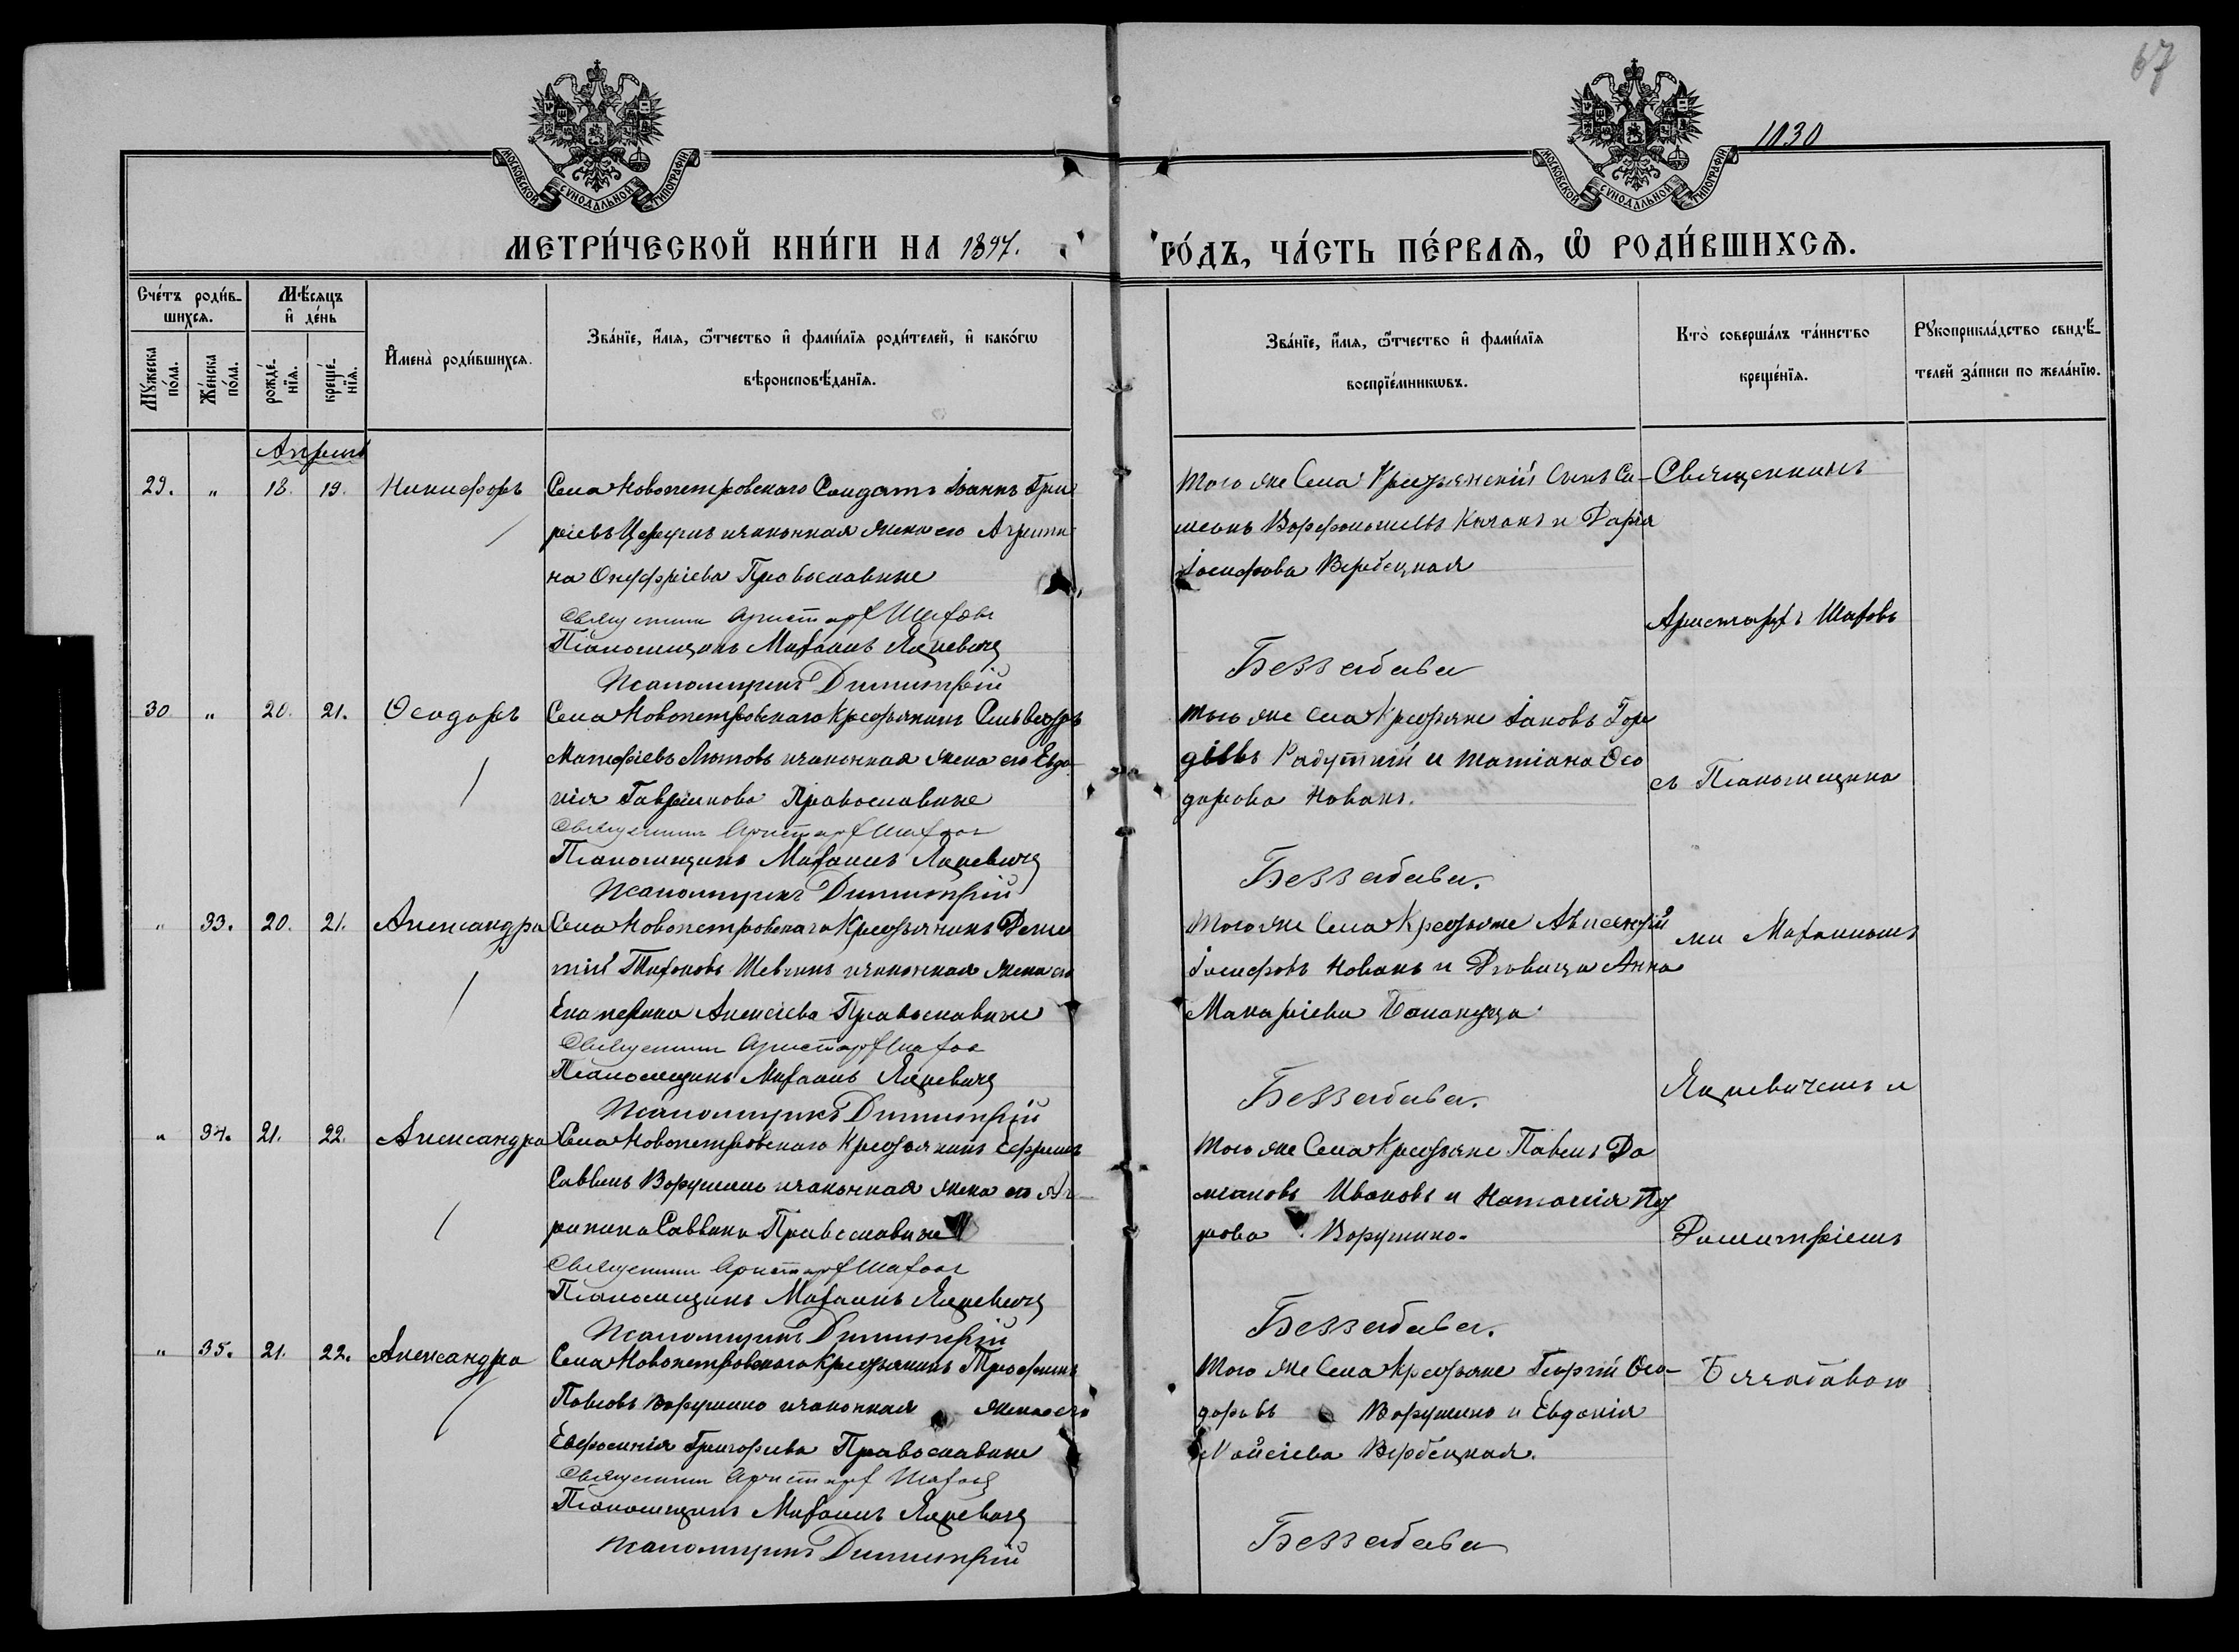 67
1030
МОСКОВСКОЙ СѴНОДАЛЬНОЙ ТИПОГРАФІИ
МОСКОВСКОЙ СѴНОДАЛЬНОЙ ТИПОГРАФІИ
МЕТРИ́ЧЕСКОЙ КНИ́ГИ НА 1897. ГО́ДЪ, ЧА́СТЬ ПЕ́РВАЯ, Ѽ РОДИ́ВШИХСЯ.
Сче́тъ роди́в-
шихся.
Мꙋ́жеска по́ла.
Же́нска по́ла.
Мѣ́сяцъ и҆ де́нь
рожде́-нїя.
креще́-нїя.
И҆мена̀ роди́вшихся.
Зва́нїе, и҆́мя, ѻ҆́тчество и҆ фами́лїя роди́телей, и҆ како́гѡ
вѣроисповѣ́данїя.
Зва́нїе, и҆́мя, ѻ҆́тчество и҆ фами́лїя
воспрїе́мникѡвъ.
Кто̀ соверша́лъ та́инство
креще́нїя.
Рꙋкоприкла́дство свидѣ́-
телей за́писи по жела́нїю.
Апрель
29. " 18. 19. Никифоръ
Села Новопетровскаго Солдатъ Іоаннъ Григо
ріевъ и законная жена его Агрипи
на Онуфріева Православные
Священникъ Аристархъ Шаховъ
Псаломщикъ Михаилъ Яцкевичъ
Псаломщикъ Димитрій
Того же Села Крестьянскій Сынъ Си-
меонъ Варфоломеевъ и Дарія
Іосифова Вербецкая
Беззабава
Священникъ
Аристархъ Шаховъ
30 " 20. 21. Ѳеодоръ
Села Новопетровскаго Крестьянинъ Сильвестръ
Матфіевъ Лютовъ и законная жена его Евдо
кія Гавріилова Православные
Священникъ Аристархъ Шаховъ
Псаломщикъ Михаилъ Яцкевичъ
Псаломщикъ Димитрій
Того же Села Крестьяне Іаковъ Гор
діевъ и Татіана Ѳео
дорова Новакъ.
Беззабава.
съ Псаломщика
" 33. 20. 21. Александра
Села Новопетровскаго Крестьянинъ Демен
тій Тихоновъ Шевчикъ и законная жена его
Екатерина Алексіева Православные
Священникъ Аристархъ Шаховъ
Псаломщикъ Михаилъ Яцкевичъ
Псаломщикъ Димитрій
Того же Села Крестьяне Авксентій
Іосифовъ Новакъ и Дѣвица Анна
Макаріева
Беззабава.
ми Михаиломъ
Яцкевичемъ и
" 34. 21. 22. Александра
Села Новопетровскаго Крестьянинъ Ефремъ
Саввинъ и законная жена его Аг
рипина Саввина Православные
Священникъ Аристархъ Шаховъ
Псаломщикъ Михаилъ Яцкевичъ
Псаломщикъ Димитрій
Того же Села Крестьяне Павелъ Да
міановъ Ивановъ и Наталія
рова
Беззабава.
Димитріемъ
" 35. 21. 22. Александра
Села Новопетровскаго Крестьянинъ Трофимъ
Павловъ и законная жена его
Евфросинія Григорьева Православные
Священникъ Аристархъ Шаховъ
Псаломщикъ Михаилъ Яцкевичъ
Псаломщикъ Димитрій
Того же Села Крестьяне Георгій Ѳео-
доровъ и Евдокія
Моисіева Вербецкая.
Беззабава
Беззабавою